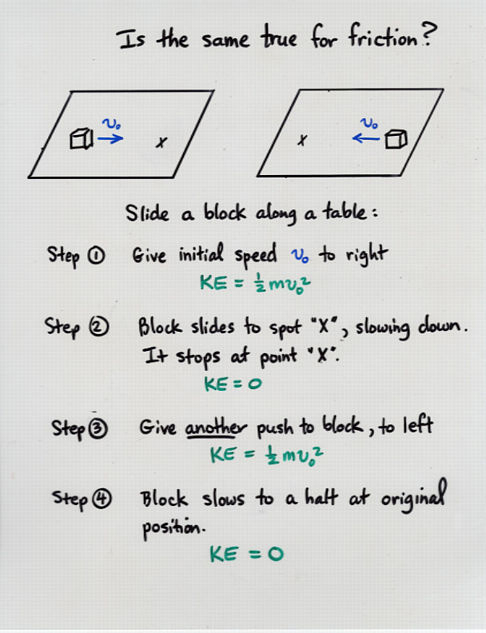 Is the same true for friction?
v₀
x
v₀
x
Slide a block along a table:
Step ① Give initial speed v₀ to right
KE = ½mv₀²
Step ② Block slides to spot "X", slowing down.
It stops at point "X".
KE = 0
Step ③ Give another push to block, to left
KE = ½mv₀²
Step ④ Block slows to a halt at original
position.
KE = 0